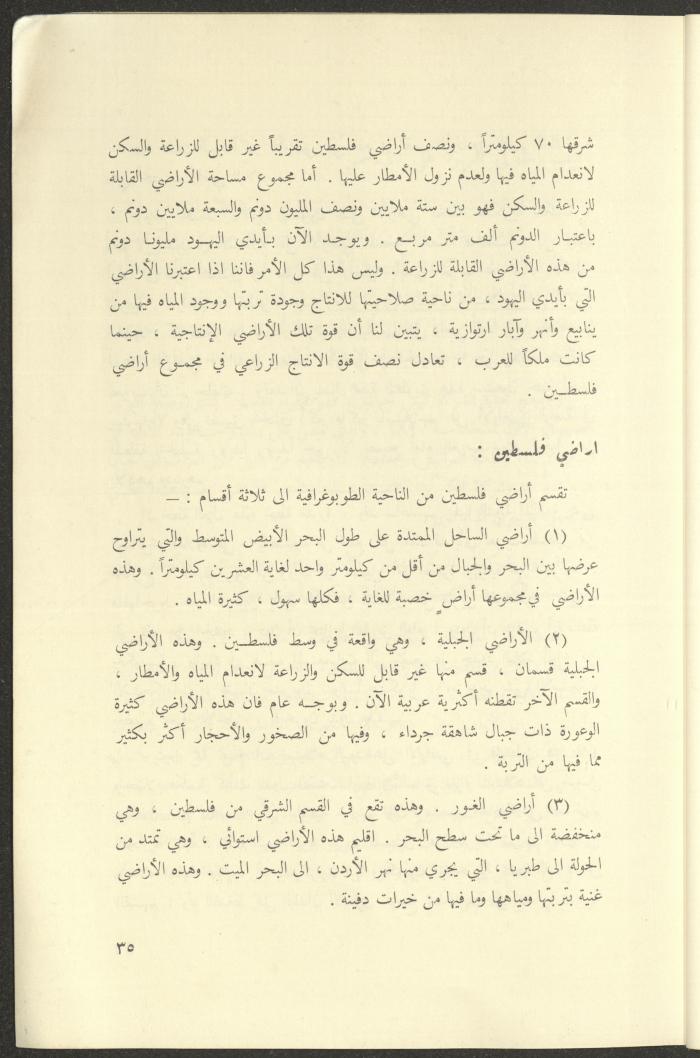 شرقها ٧٠ كيلومتراً ، ونصف أراضي فلسطين تقريباً غير قابل للزراعة والسكن
لانعدام المياه فيها ولعدم نزول الأمطار عليها . أما مجموع مساحة الأراضي القابلة
للزراعة والسكن فهو بين ستة ملايين ونصف المليون دونم والسبعة ملايين دونم ،
باعتبار الدونم ألف متر مربع . ويوجد الآن بأيدي اليهود مليونا دونم
من هذه الأراضي القابلة للزراعة . وليس هذا كل الأمر فاننا اذا اعتبرنا الأراضي
التي بأيدي اليهود ، من ناحية صلاحيتها للانتاج وجودة تربتها ووجود المياه فيها من
ينابيع وأنهر وآبار ارتوازية ، يتبين لنا أن قوة تلك الأراضي الإنتاجية ، حينما
كانت ملكاً للعرب ، تعادل نصف قوة الانتاج الزراعي في مجموع أراضي
فلسطين .
اراضي فلسطين :
تقسم أراضي فلسطين من الناحية الطوبوغرافية الى ثلاثة أقسام : —
(١) أراضي الساحل الممتدة على طول البحر الأبيض المتوسط والتي يتراوح
عرضها بين البحر والجبال من أقل من كيلومتر واحد لغاية العشرين كيلومتراً . وهذه
الأراضي في مجموعها أراضٍ خصبة للغاية ، فكلها سهول ، كثيرة المياه .
(٢) الأراضي الجبلية ، وهي واقعة في وسط فلسطين . وهذه الأراضي
الجبلية قسمان ، قسم منها غير قابل للسكن والزراعة لانعدام المياه والأمطار ،
والقسم الآخر تقطنه أكثرية عربية الآن . وبوجه عام فان هذه الأراضي كثيرة
الوعورة ذات جبال شاهقة جرداء ، وفيها من الصخور والأحجار أكثر بكثير
مما فيها من التربة .
(٣) أراضي الغور . وهذه تقع في القسم الشرقي من فلسطين ، وهي
منخفضة الى ما تحت سطح البحر . اقليم هذه الأراضي استوائي ، وهي تمتد من
الحولة الى طبريا ، التي يجري منها نهر الأردن ، الى البحر الميت . وهذه الأراضي
غنية بتربتها ومياهها وما فيها من خيرات دفينة .
٣٥